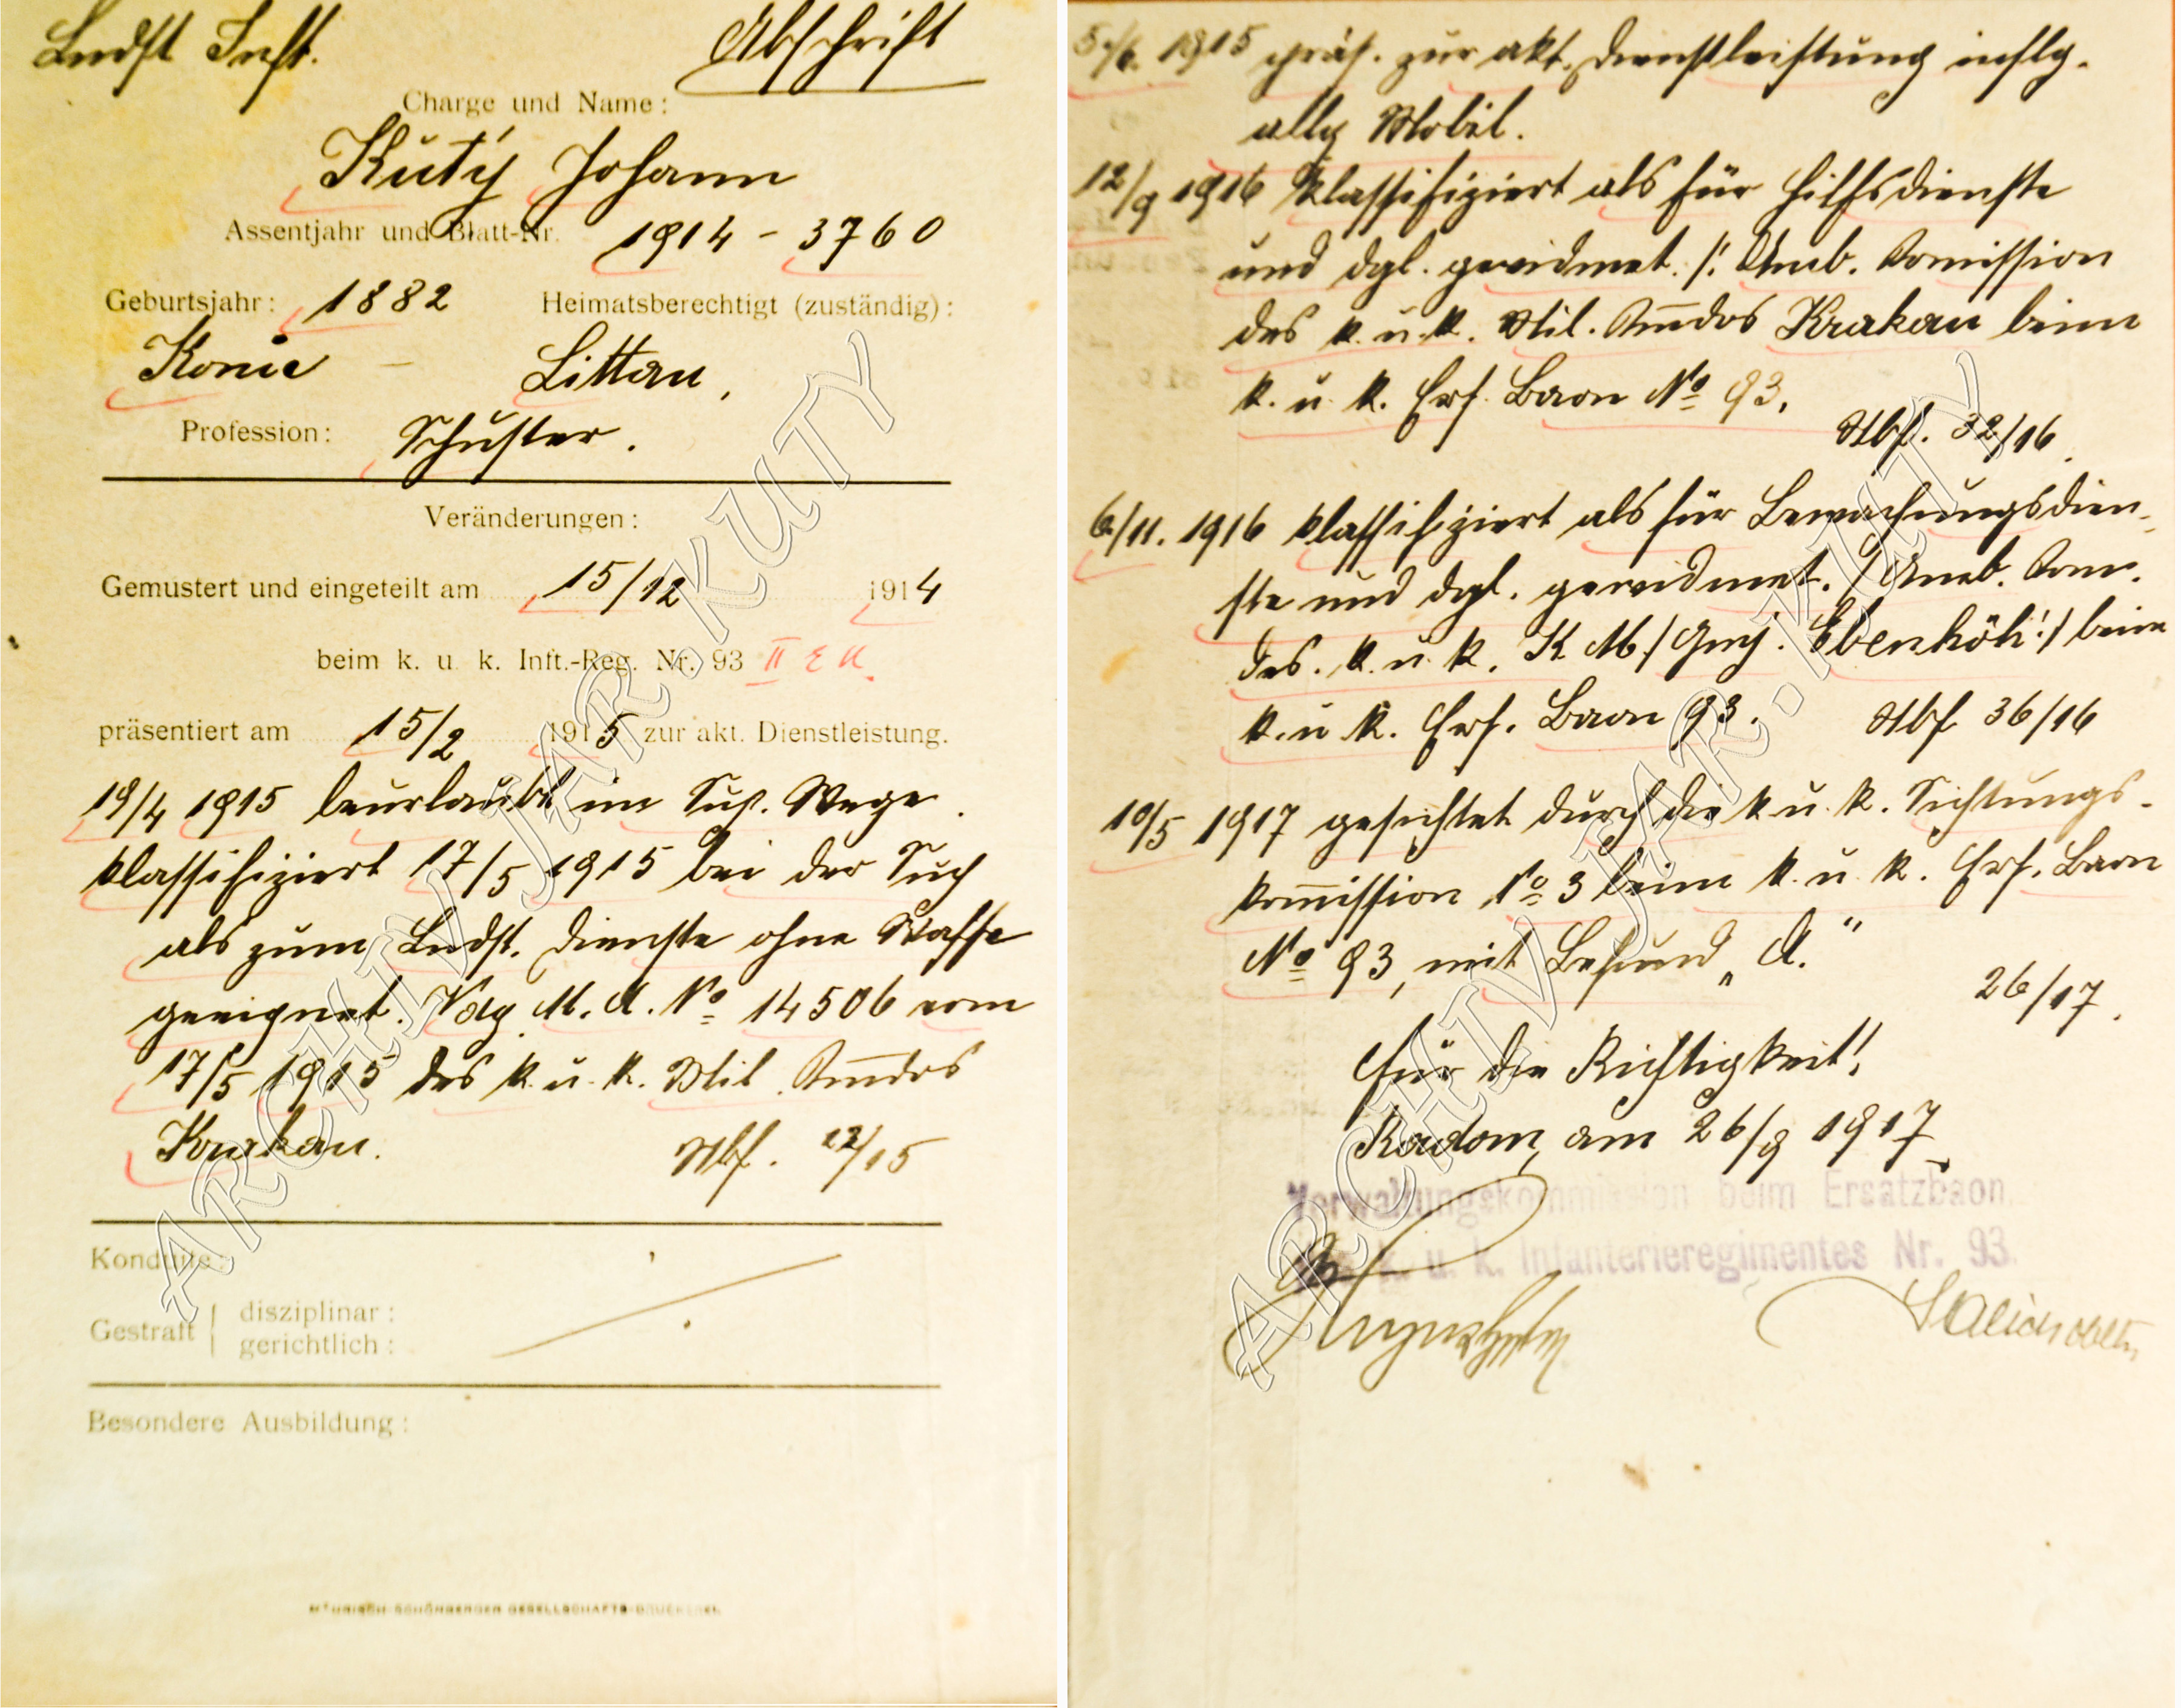 Lndst Inft.
Abschrift
Charge und Name:
Kutý Johann
Assentjahr und Blatt-Nr. 1914 - 3760
Geburtsjahr: 1882 Heimatsberechtigt (zuständig):
Konic - Littau,
Profession: Schuster.
Veränderungen:
Gemustert und eingeteilt am 15/12 1914
beim k. u. k. Inft.-Reg. Nr. 93 II E K.
präsentiert am 15/2 1915 zur akt. Dienstleistung.
19/4 1915 beurlaubt im Sup. Wege.
klassifiziert 17/5 1915 bei der Sup
als zum Lndst. Dienste ohne Waffe
geeignet. Vdg M. A. No 14506 vom
17/5 1915 des k. u. k. Mil. Kmdos
Krakau. Stbf. 22/15
Konduite:
Gestraft disziplinar:
gerichtlich:
Besondere Ausbildung:
MÄHRISCH-SCHÖNBERGER GESELLSCHAFTS-DRUCKEREI.
ARCHIV JAR. KUTY
5./6. 1915 präs. zur akt. Dienstleistung inflg.
allg Mobil.
12/9 1916 klassifiziert als für Hilfsdienste
und dgl. gewidmet. /: Amb. Komission
des k. u. k. Mil. Kmdos Krakau beim
k. u. k. Ers. Baon No 93.
Stbf. 32/16.
6/11. 1916 klassifiziert als für Bewachungsdien-
ste und dgl. gewidmet. / Amb. Kom.
des. k. u. k. K M / Gmj. Ebenhöh :/ beim
k. u. k. Ers. Baon 93. Stbf 36/16
10/5 1917 gesichtet durch die k. u. k. Sichtungs-
kom̅ission No 3 beim k. u. k. Ers. Baon
No 93, mit Befund „A."
26/17.
Für die Richtigkeit!
Radom, am 26/9 1917
Verwaltungskommission beim Ersatzbaon.
des k. u. k. Infanterieregimentes Nr. 93.
ARCHIV JAR. KUTY